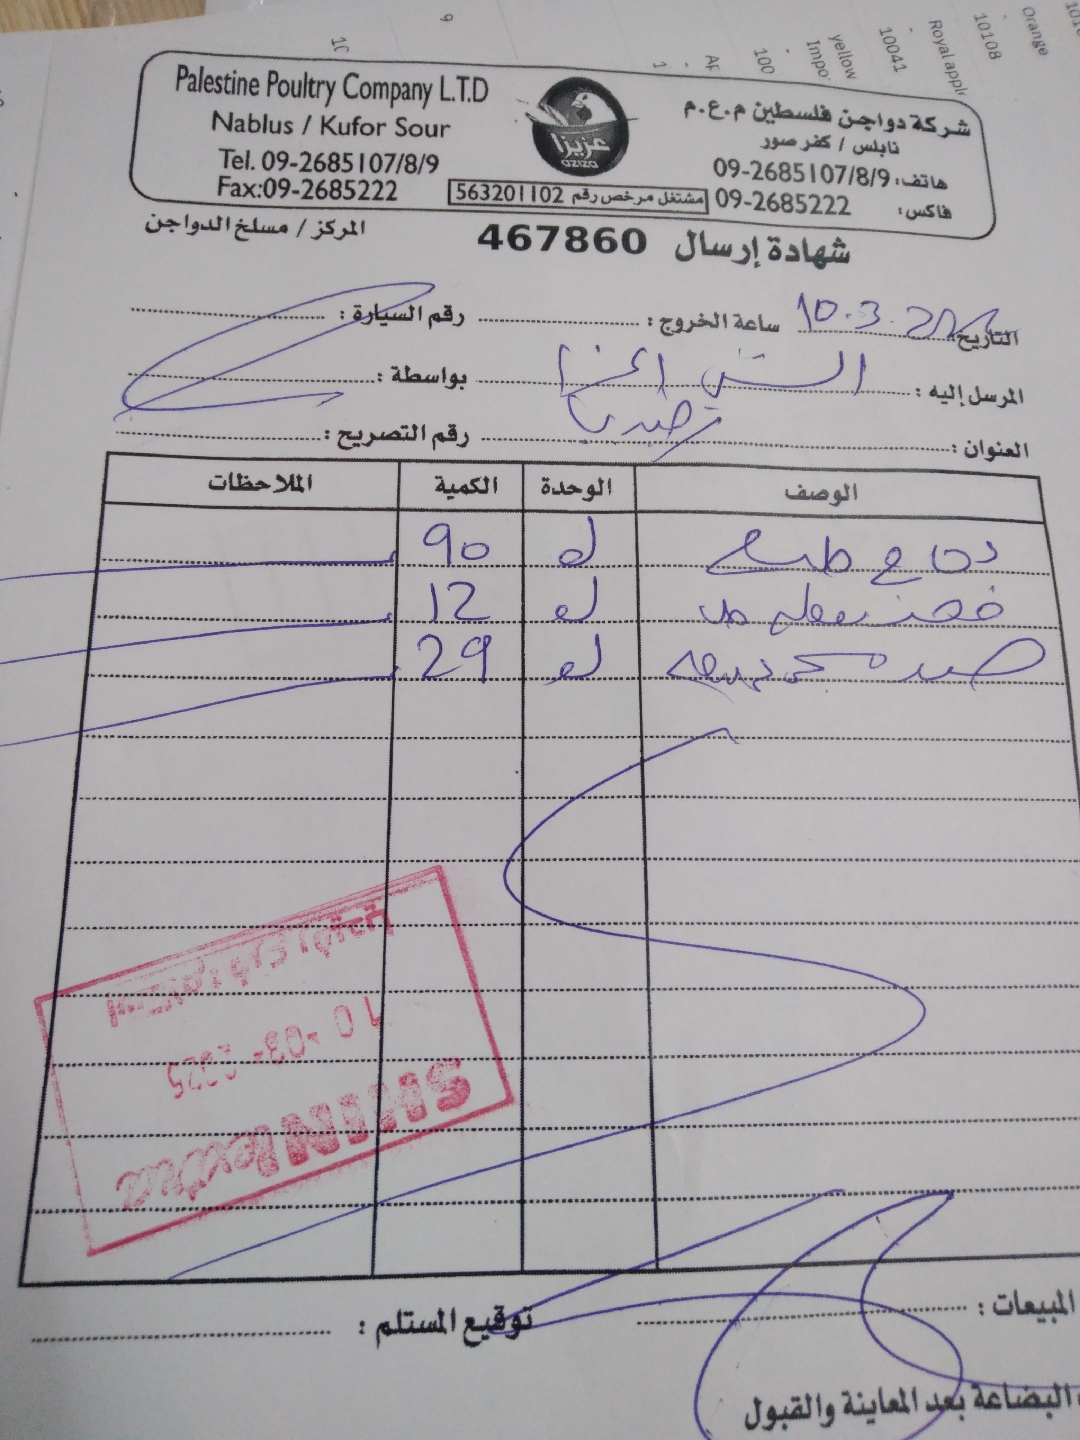 Palestine Poultry Company L.T.D
Nablus / Kufor Sour
Tel. 09-2685107/8/9
Fax:09-2685222
عزيزا
aziza
شركة دواجن فلسطين م.ع.م
نابلس / كفر صور
هاتف: 09-2685107/8/9
فاكس: 09-2685222
مشتغل مرخص رقم 563201102
المركز / مسلخ الدواجن
شهادة إرسال 467860
التاريخ: 10.3. ساعة الخروج: رقم السيارة:
المرسل إليه: بواسطة:
العنوان: رقم التصريح:
الوصف الوحدة الكمية الملاحظات
دجاج 90
فخذ 12
صدر 29
10-03-2025
SHINIextra
المبيعات: توقيع المستلم:
البضاعة بعد المعاينة والقبول
Orange
10108
Royal
10041
yellow
100